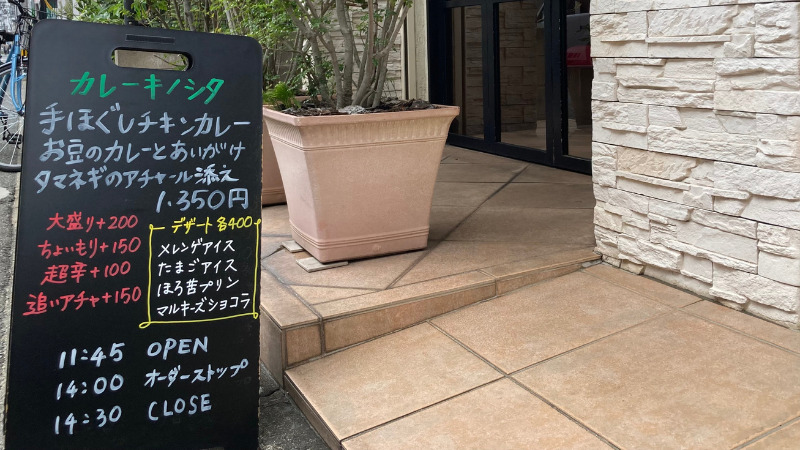 カレーキノシタ
手ほぐしチキンカレー
お豆のカレーとあいがけ
タマネギのアチャール添え
1.350円
大盛り+200
ちょいもり+150
超辛+100
追いアチャ+150
デザート各400
メレンゲアイス
たまごアイス
ほろ苦プリン
マルキーズショコラ
11:45 OPEN
14:00 オーダーストップ
14:30 CLOSE